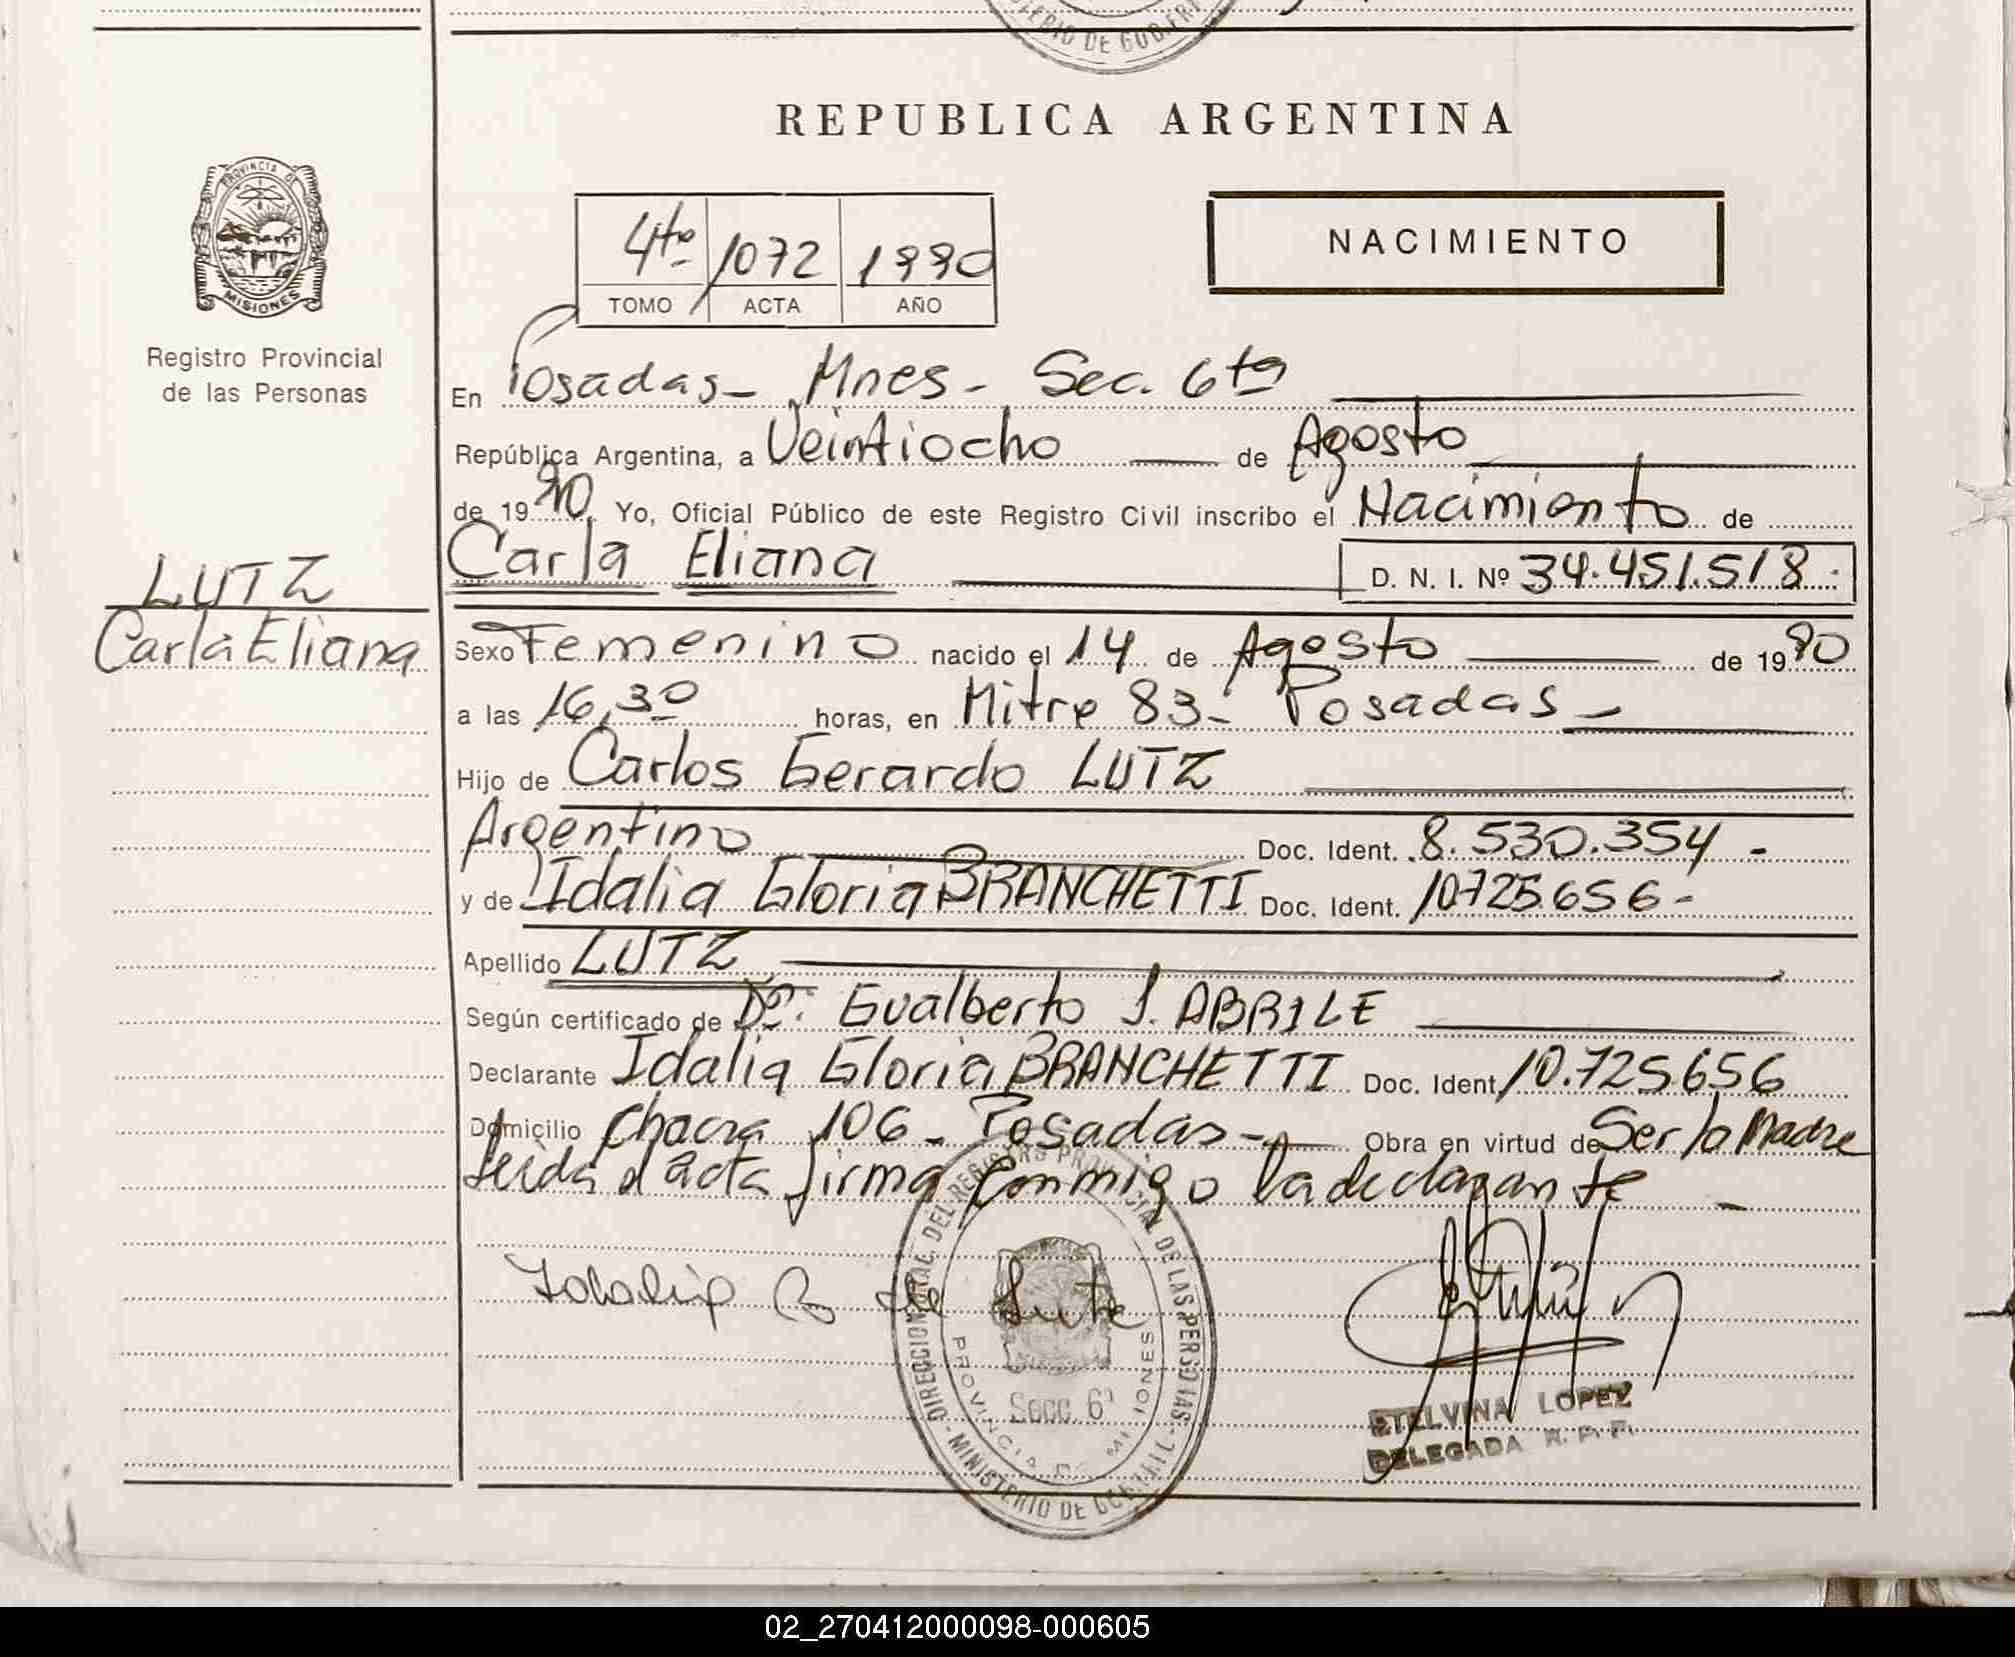 REPUBLICA ARGENTINA
PROVINCIA DE
MISIONES
Registro Provincial
de las Personas
NACIMIENTO
4to 1072 1990
TOMO ACTA AÑO
En Posadas - Mnes - Sec. 6ta
República Argentina, a Veintiocho de Agosto
de 1990 Yo, Oficial Público de este Registro Civil inscribo el Nacimiento de
Carla Eliana D. N. I. Nº 34.451.518.
LUTZ
Carla Eliana
Sexo Femenino nacido el 14 de Agosto de 1990
a las 16,30 horas, en Mitre 83 - Posadas -
Hijo de Carlos Gerardo LUTZ
Argentino Doc. Ident. 8.530.354 -
y de Idalia Gloria BRANCHETTI Doc. Ident. 10.725.656 -
Apellido LUTZ
Según certificado de Dº: Gualberto J. ABRILE
Declarante Idalia Gloria BRANCHETTI Doc. Ident. 10.725.656
Domicilio Chacra 106 - Posadas - Obra en virtud de Ser la Madre
Leida el acta firma conmigo la declarante -
Idalia B de Lutz
DIRECCION GRAL. DEL REGISTRO PROVINCIAL DE LAS PERSONAS
PROVINCIA DE MISIONES
Secc. 6ª
MINISTERIO DE GOBIERNO
ETELVINA LOPEZ
DELEGADA R. P. P.
02_270412000098-000605